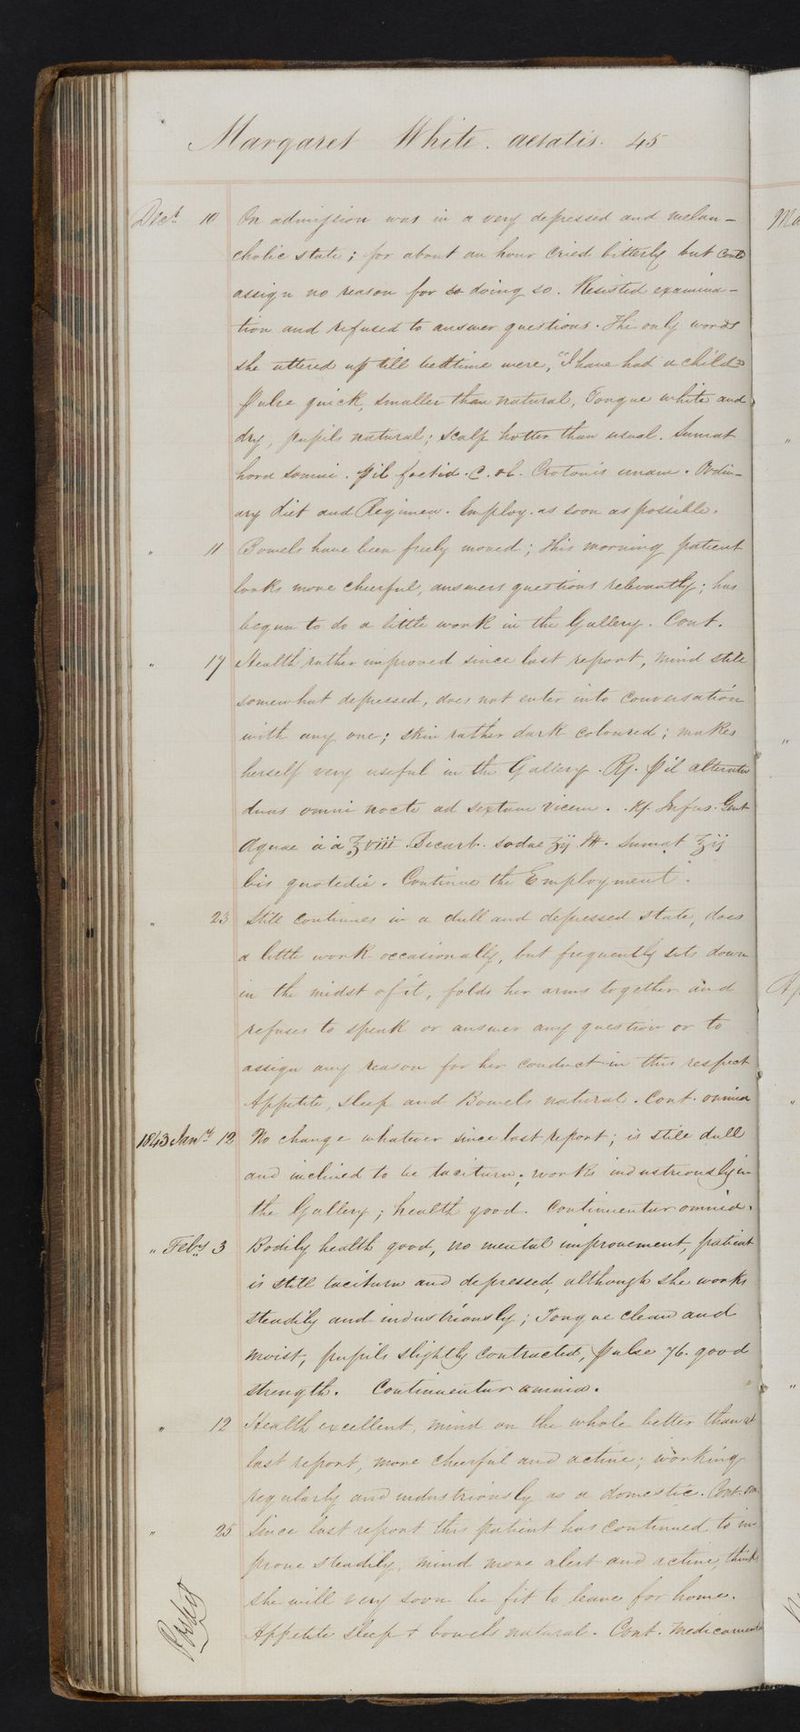 Margaret White. aetatis. 45
Decr. 10 On admission was in a very depressed and melan-
cholic state; for about an hour cried bitterly but could
assign no reason for so doing so. Resisted examina-
tion and refused to answer questions. The only words
she uttered up till bedtime were, "I have had a child"
Pulse quick, smaller than natural, Tongue white and
dry, pupils natural; scalp hotter than usual. Sumat
hora somni. Pil foetid. C. ol. Crotonis unam. Ordin-
ary Diet and Regimen. Employ. as soon as possible.
" 11 Bowels have been freely moved; this morning patient
looks more cheerful, answers questions relevantly; has
begun to do a little work in the Gallery. Cont.
" 17 Health rather improved since last report, mind still
somewhat depressed, does not enter into conversation
with any one; skin rather dark coloured; makes
herself very useful in the Gallery. Rx. Pil alterativ
duas omni nocte ad sextam vicem. Rx. Infus. Gent
Aquae āā ℥viii Bicarb. sodae ʒij M. Sumat ℥ij
bis quotidie. Continue the Employment.
" 23 Still continues in a dull and depressed state, does
a little work occasionally, but frequently sits down
in the midst of it, folds her arms together and
refuses to speak or answer any question or to
assign any reason for her conduct in this respect
Appetite, sleep and Bowels natural. Cont. omnia
1843 Jany. 12 No change whatever since last report; is still dull
and inclined to be taciturn; works industriously in
the Gallery; health good. Continuentur omnia.
" Feby 3 Bodily health good, no mental improvement, patient
is still taciturn and depressed, although she works
steadily and industriously; Tongue clean and
moist, pupils slightly contracted, Pulse 76. good
strength. Continuentur omnia.
" 12 Health excellent, mind on the whole better than at
last report, more cheerful and active; working
regularly and industriously as a domestic. Cont. om
" 25 Since last report this patient has continued to im
prove steadily, mind more alert and active, think
she will very soon be fit to leave for home.
Appetite sleep & bowels natural. Cont. medicament